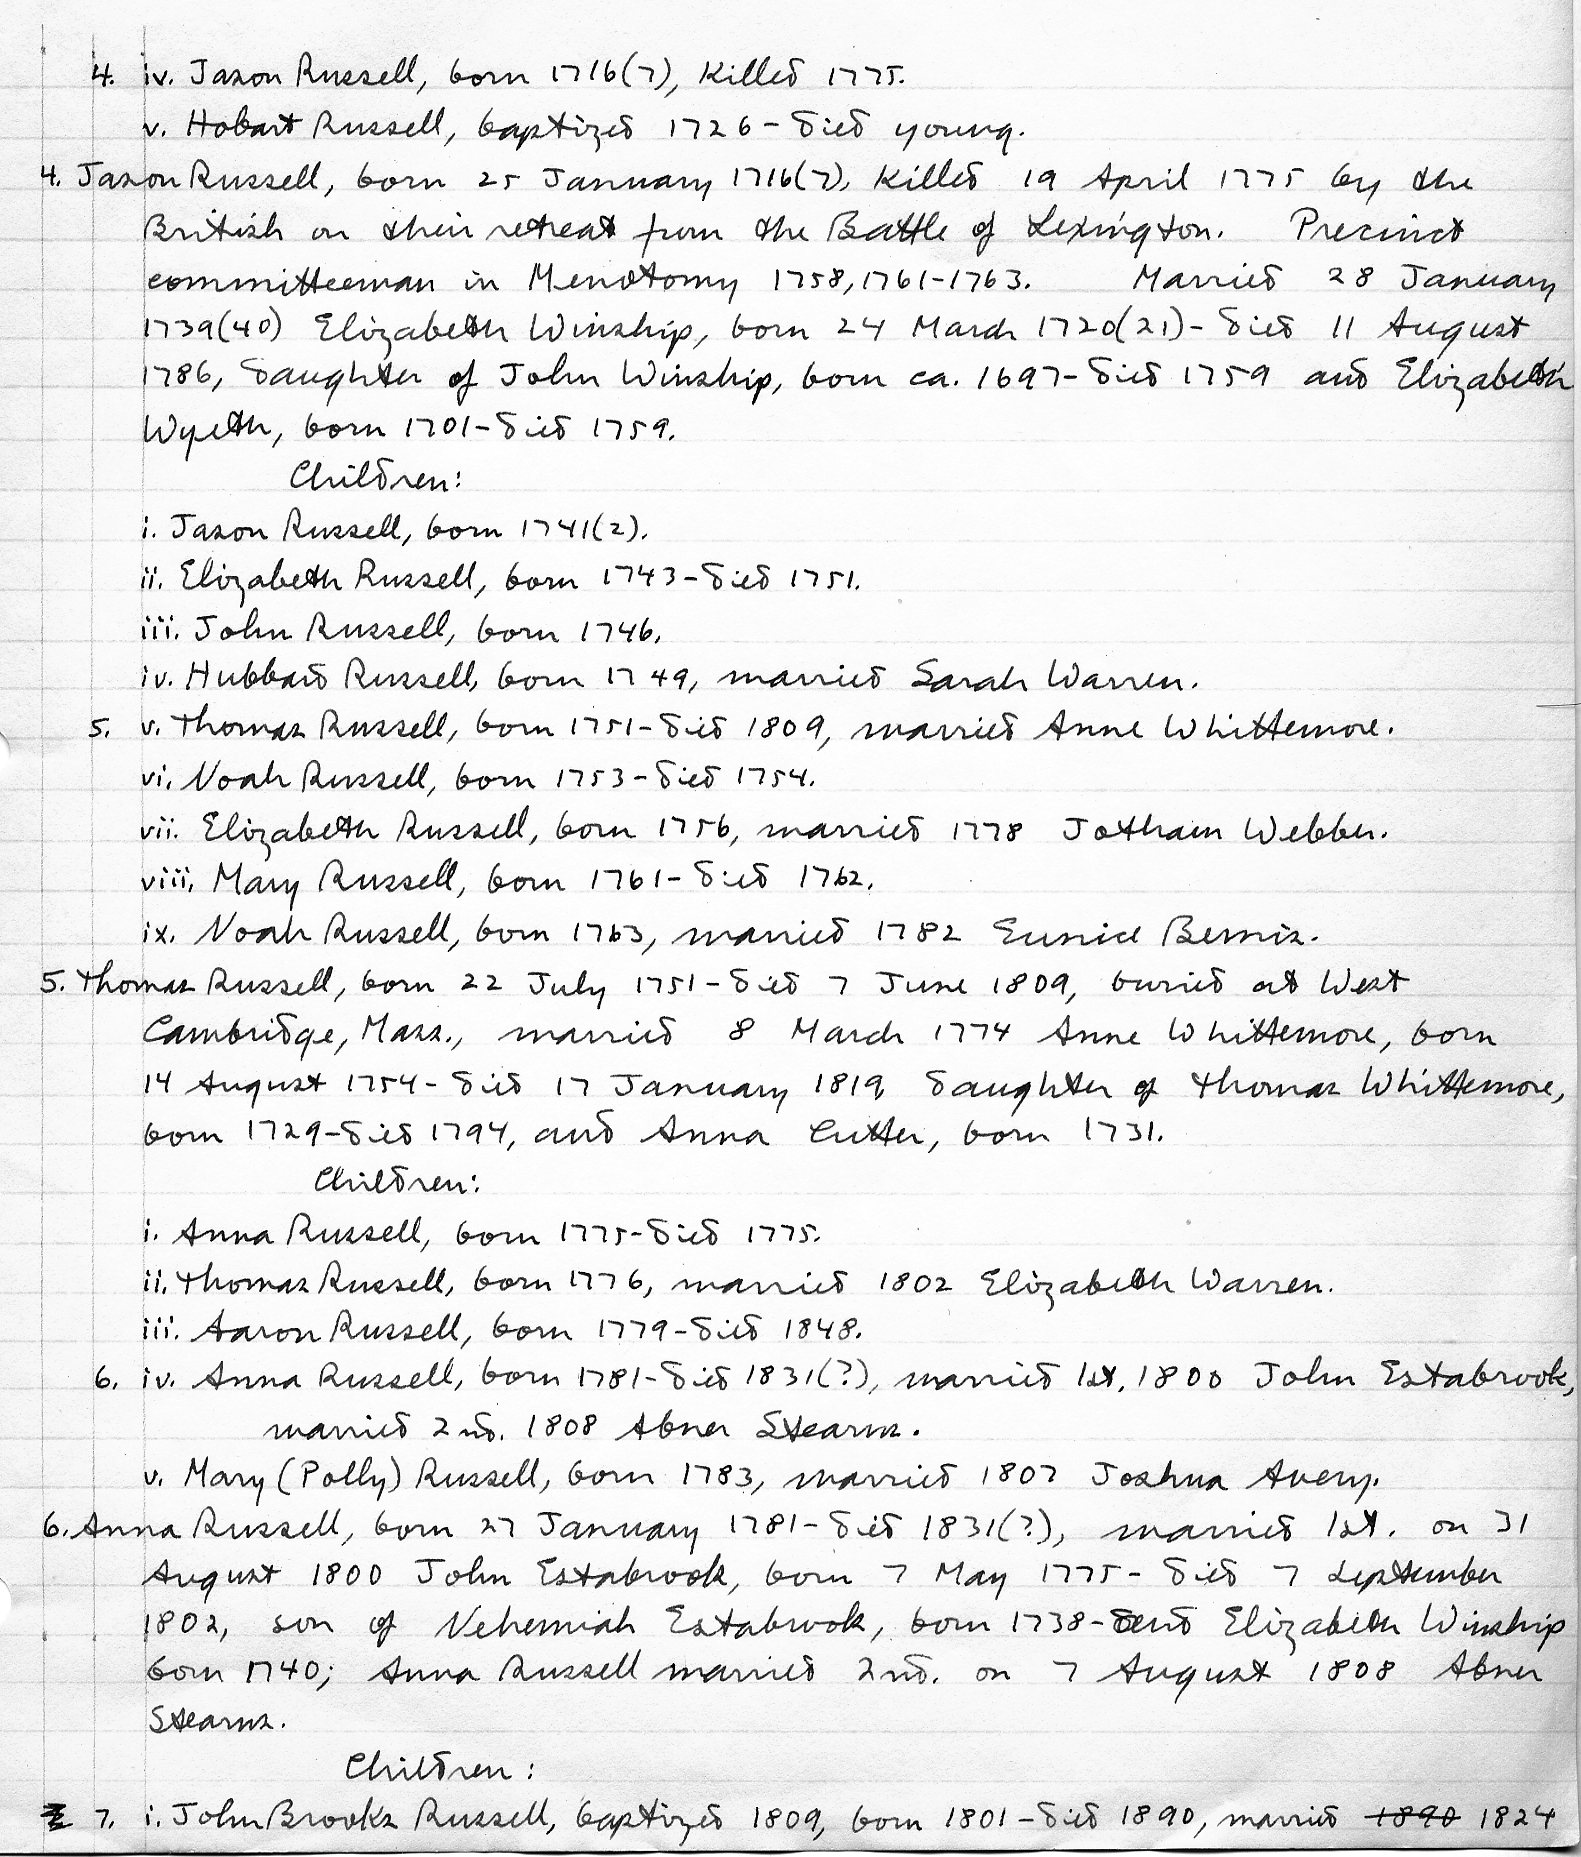 4. iv. Jason Russell, born 1716(7), killed 1775.
v. Hobart Russell, baptized 1726-died young.
4. Jason Russell, born 25 January 1716(7), killed 19 April 1775 by the
British on their retreat from the Battle of Lexington. Precinct
committeeman in Menotomy 1758, 1761-1763. Married 28 January
1739(40) Elizabeth Winship, born 24 March 1720(21)-died 11 August
1786, daughter of John Winship, born ca. 1697-died 1759 and Elizabeth
Wyeth, born 1701-died 1759.
Children:
i. Jason Russell, born 1741(2).
ii. Elizabeth Russell, born 1743-died 1751.
iii. John Russell, born 1746.
iv. Hubbard Russell, born 1749, married Sarah Warren.
5. v. Thomas Russell, born 1751-died 1809, married Anne Whittemore.
vi. Noah Russell, born 1753-died 1754.
vii. Elizabeth Russell, born 1756, married 1778 Jotham Webber.
viii. Mary Russell, born 1761-died 1762.
ix. Noah Russell, born 1763, married 1782 Eunice Bemis.
5. Thomas Russell, born 22 July 1751-died 7 June 1809, buried at West
Cambridge, Mass., married 8 March 1774 Anne Whittemore, born
14 August 1754-died 17 January 1819, daughter of Thomas Whittemore,
born 1729-died 1794, and Anna Cutter, born 1731.
Children:
i. Anna Russell, born 1775-died 1775.
ii. Thomas Russell, born 1776, married 1802 Elizabeth Warren.
iii. Aaron Russell, born 1779-died 1848.
6. iv. Anna Russell, born 1781-died 1831(?), married 1st. 1800 John Estabrook,
married 2nd. 1808 Abner Stearns.
v. Mary (Polly) Russell, born 1783, married 1807 Joshua Avery.
6. Anna Russell, born 27 January 1781-died 1831(?), married 1st. on 31
August 1800 John Estabrook, born 7 May 1775-died 7 September
1802, son of Nehemiah Estabrook, born 1738- and Elizabeth Winship
born 1740; Anna Russell married 2nd. on 7 August 1808 Abner
Stearns.
Children:
7. i. John Brooks Russell, baptized 1809, born 1801-died 1890, married 1890 1824